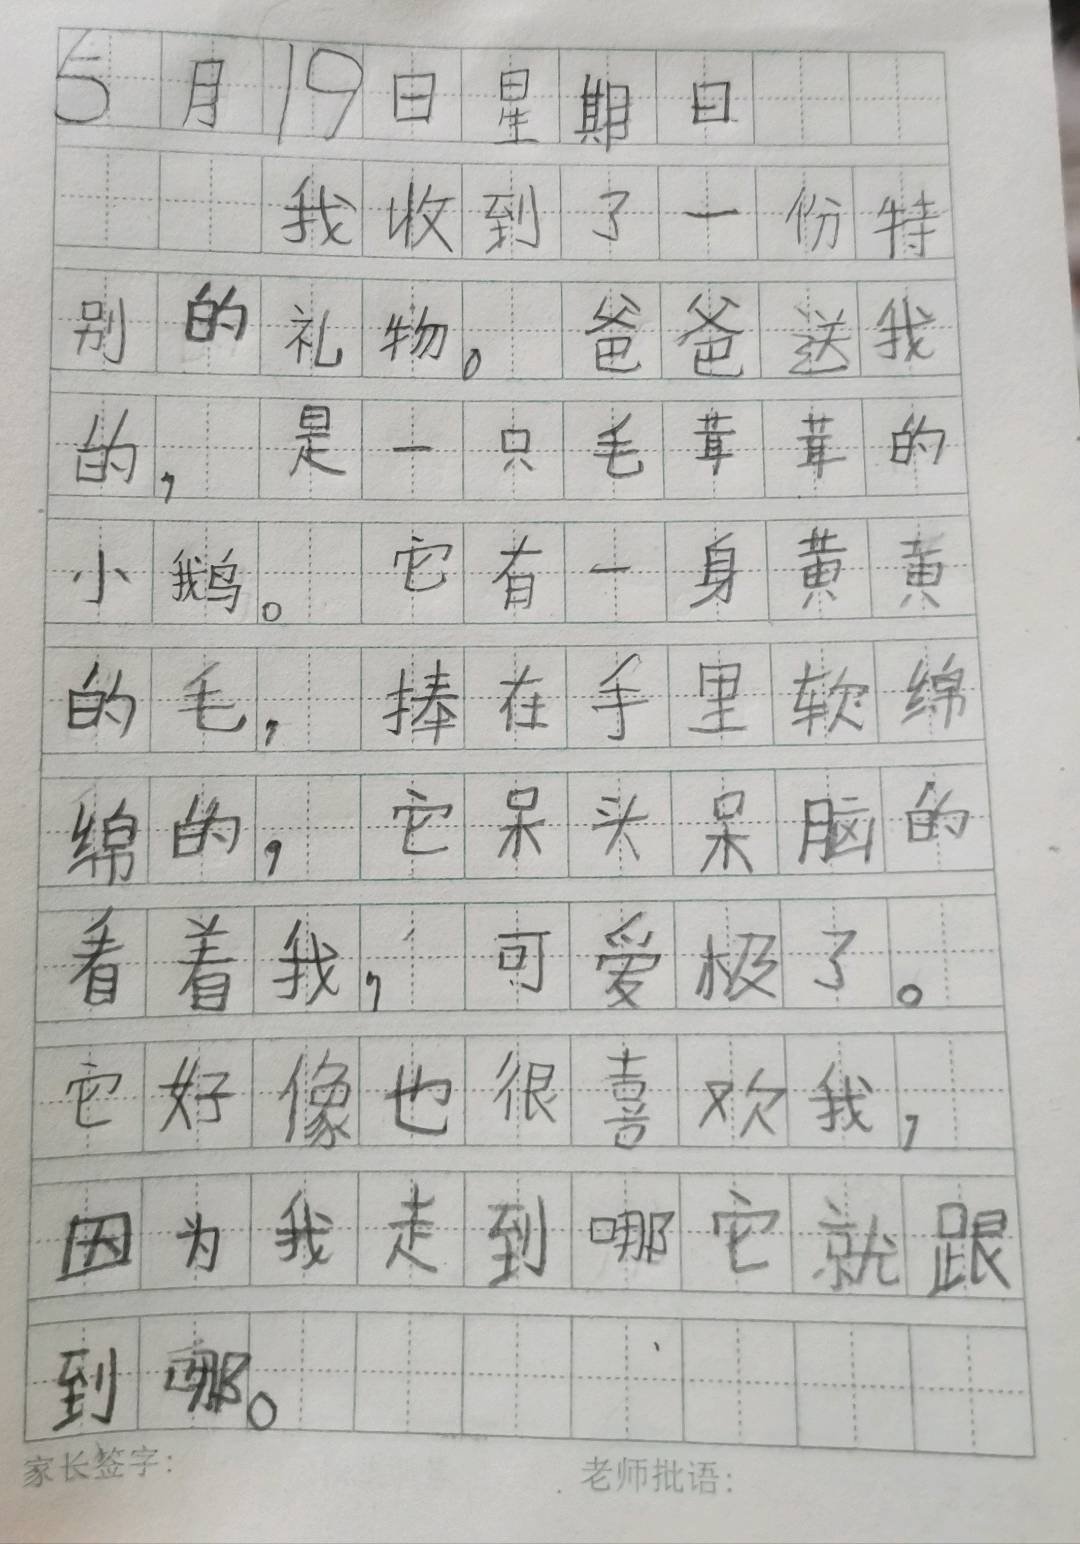 5月19日星期日
我收到了一份特
别的礼物。爸爸送我
的，是一只毛茸茸的
小鹅。它有一身黄黄
的毛，捧在手里软绵
绵的，它呆头呆脑的
看着我，可爱极了。
它好像也很喜欢我，
因为我走到哪它就跟
到哪。
家长签字：
老师批语：